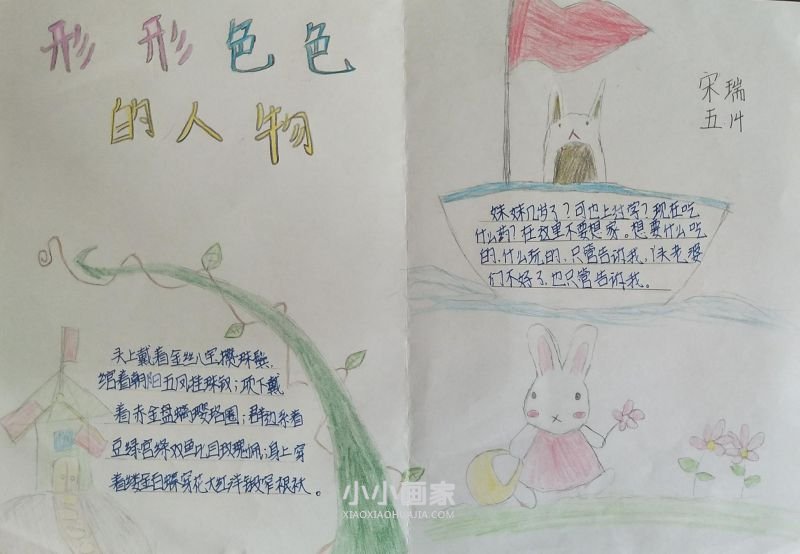 形形色色
的人物
宋瑞
五14
妹妹几岁了？可也上过学？现在吃
什么药？在这里不要想家。想要什么吃
的、什么玩的，只管告诉我，丫头老婆
们不好了，也只管告诉我。
头上戴着金丝八宝攒珠髻，
绾着朝阳五凤挂珠钗；项下戴
着赤金盘螭璎珞圈；裙边系着
豆绿宫绦双鱼比目玫瑰佩；身上穿
着缕金百蝶穿花大红洋缎窄
小小画家
XIAOXIAOHUAJIA.COM